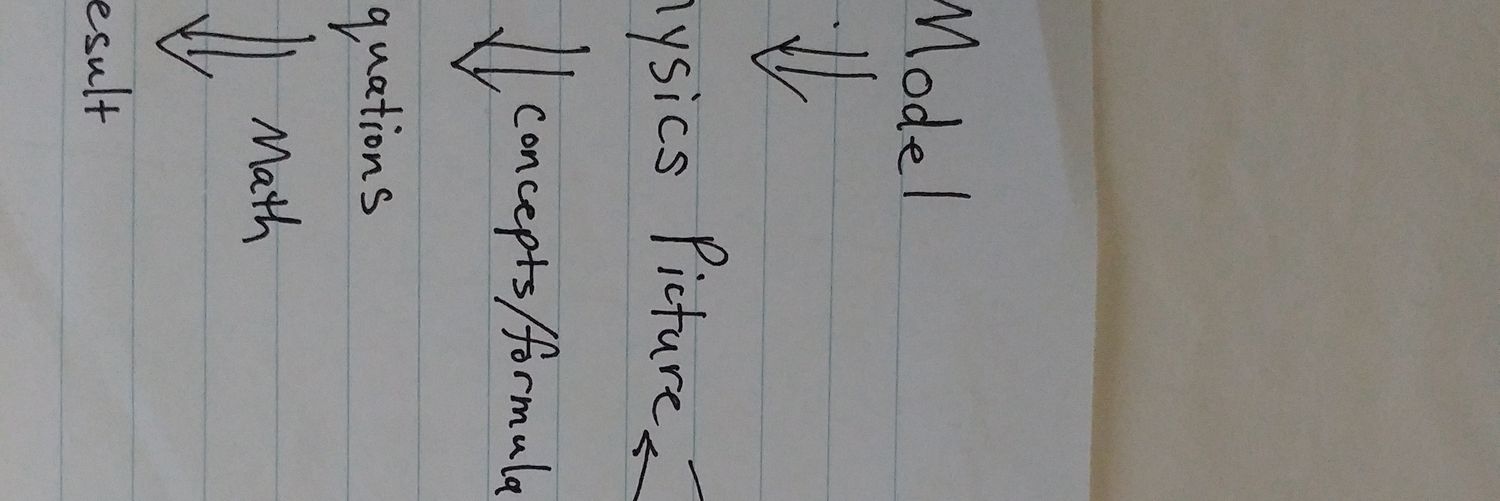 Model
ysics Picture
concepts/formula
quations
Math
esult